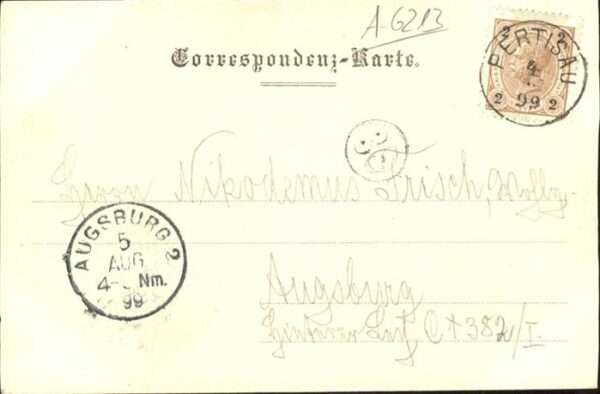 A-6213
Correspondenz-Karte.
2 2
PERTISAU
4
99
2 2
Herrn Nikodemus Frisch,
AUGSBURG 2
5
AUG
4- Nm.
99
Augsburg
Hinterer C † 382/I.